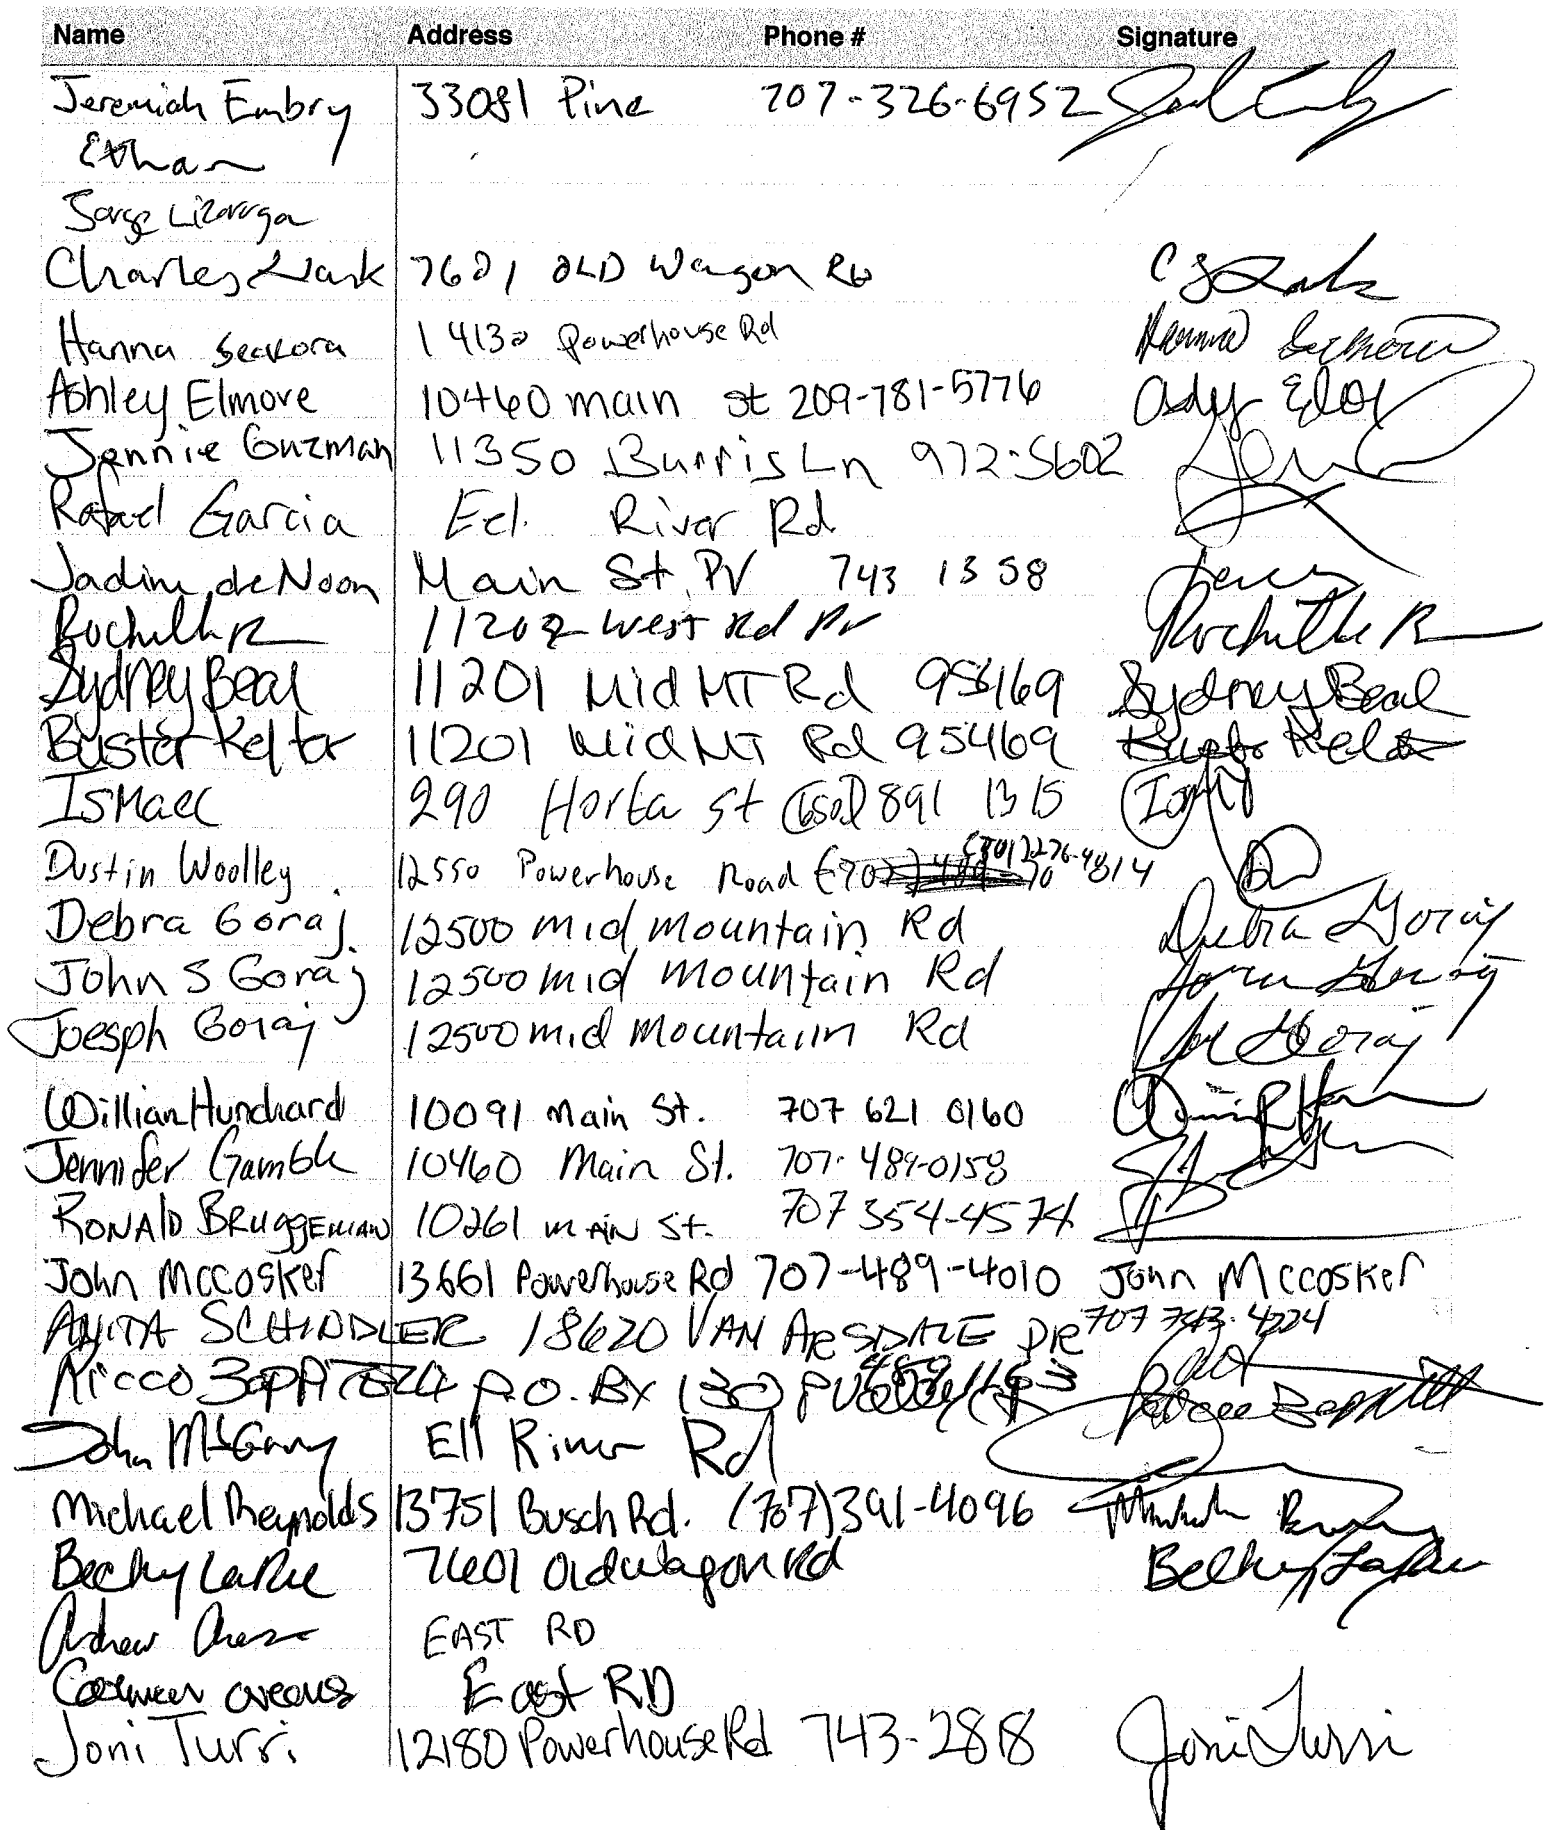 Name Address Phone # Signature
Jeremiah Embry 33081 Pine 707-326-6952
Ethan
Jorge Lizarraga
Charles 7601 OLD Wagon Rd
Hanna Seakora 14130 Powerhouse Rd
Ashley Elmore 10460 main st 209-781-5776
Jennie Guzman 11350 Burris Ln 972-5602
Rafael Garcia Eel River Rd
Jadine deNoon Main St. PV 743 1358
Rochelle R 11202 West Rd PV Rochelle R
Sydney Beal 11201 Mid MT Rd 95469 Sydney Beal
Buster Keltor 11201 Mid MT Rd 95469
Ismael 290 Horta st 891 1315
Dustin Woolley 12550 Powerhouse Road
Debra Goraj 12500 mid mountain Rd Debra Goraj
John S Goraj 12500 mid Mountain Rd John Goraj
Joesph Goraj 12500 mid Mountaiin Rd Joe Goraj
Willian Hunchard 10091 Main St. 707 621 0160
Jennifer Gamble 10460 Main St. 707-489-0158
RONALD BRUGGEMAN 10261 MAIN St. 707 354-4574
John Mccosker 13661 Powerhouse Rd 707-489-4010 John Mccosker
ANITA SCHINDLER 18620 VAN ARSDALE DR 707 743-4224
Ricco P.O. Bx 130
John McGary Ell River Rd
Michael Reynolds 13751 Busch Rd. (707)391-4096
Becky LaRue 7601 Old Wagon Rd Becky LaRue
Andrew EAST RD
East RD
Joni Turri 12180 Powerhouse Rd 743-2818 Joni Turri